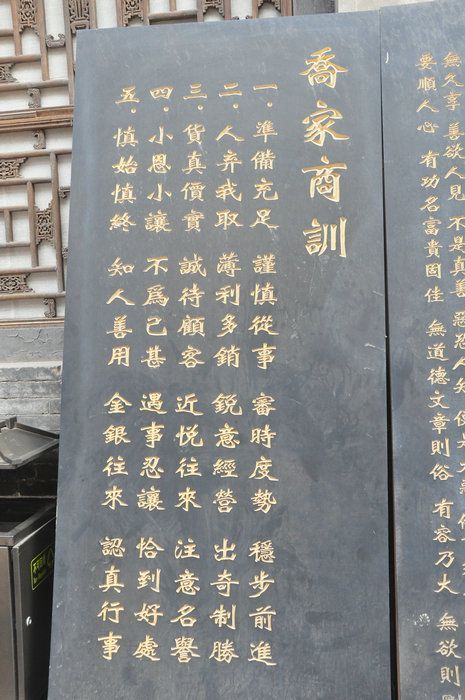 喬家商訓
一．準備充足 謹慎從事 審時度勢 穩步前進
二．人弃我取 薄利多銷 銳意經營 出奇制勝
三．貨真價實 誠待顧客 近悦往來 注意名譽
四．小恩小讓 不爲已甚 遇事忍讓 恰到好處
五．慎始慎終 知人善用 金銀往來 認真行事
無久享 善欲人見 不是真善 惡恐人知
要順人心 有功名富貴固佳 無道德文章則俗 有容乃大 無欲則